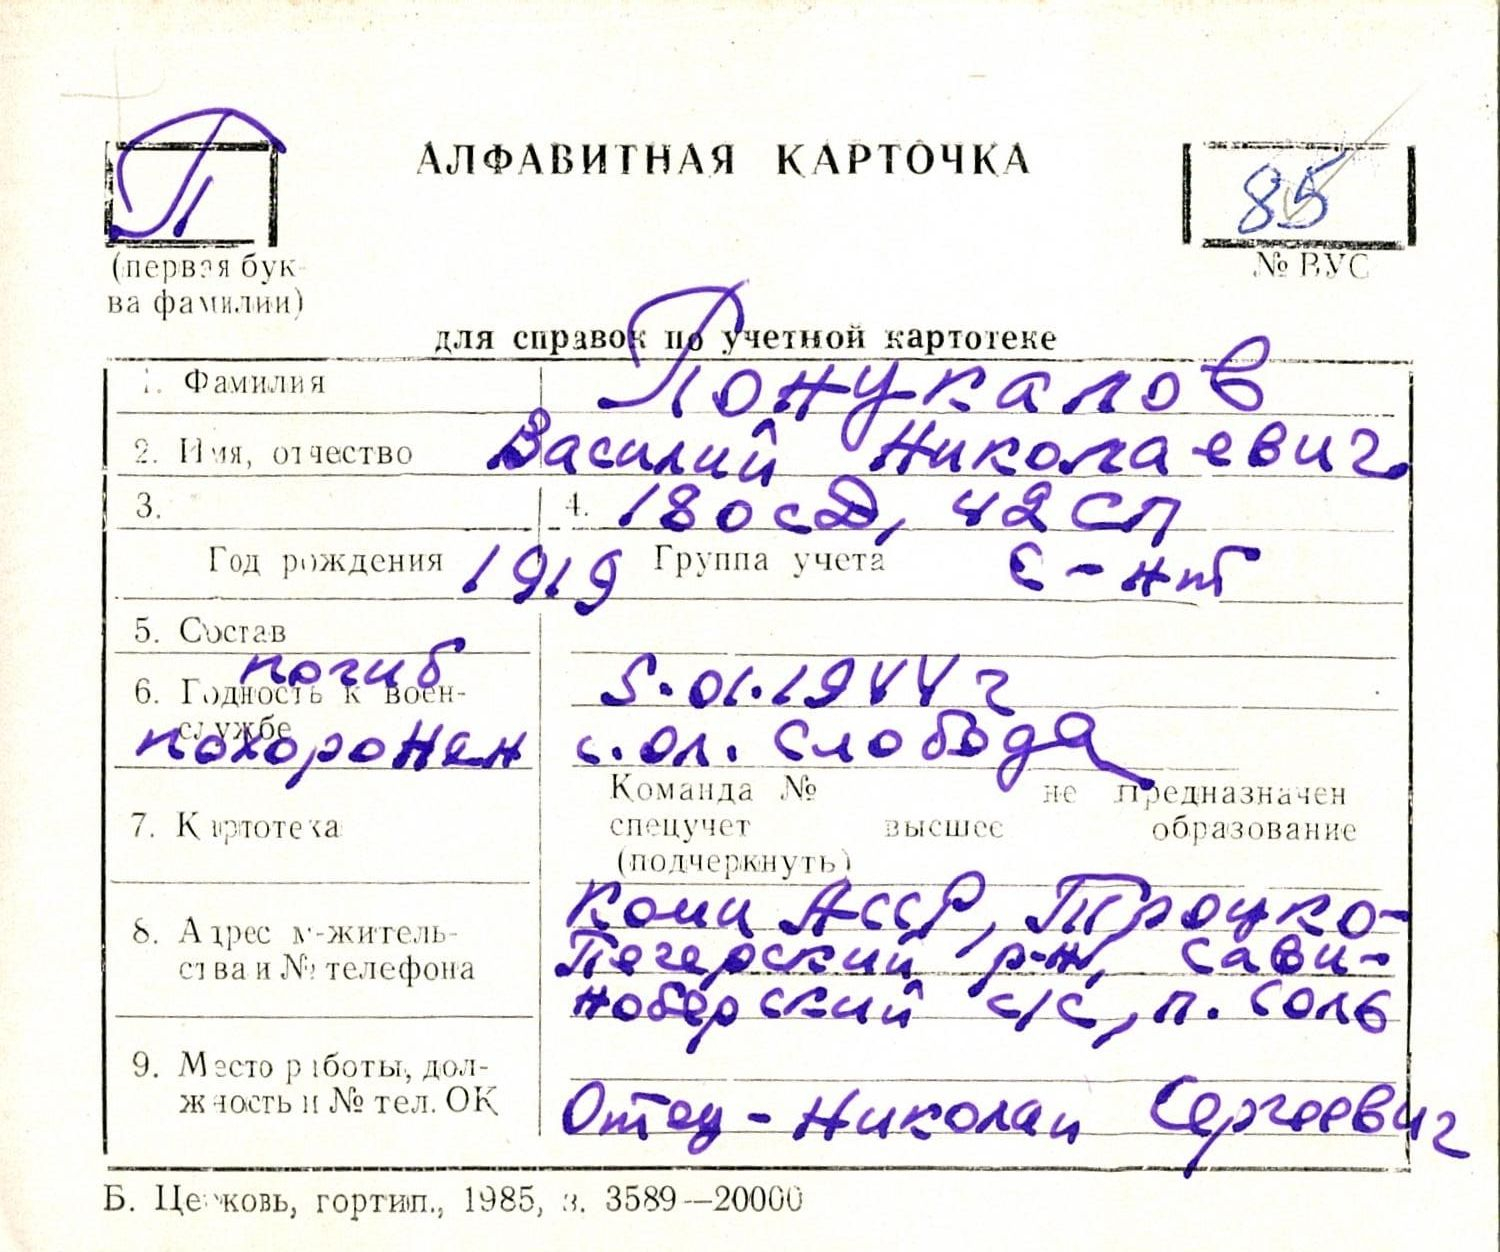 П
АЛФАВИТНАЯ КАРТОЧКА
85
(первая бук-
ва фамилии)
№ ВУС
для справок по учетной картотеке
1. Фамилия Понукалов
2. Имя, отчество Василий Николаевич
3. 4. 180 сд, 42 сп
Год рождения 1919 Группа учета с-нт
5. Состав
погиб 5.01.1944 г
6. Годность к воен-
службе
похоронен с. Ол. Слобода
Команда № не предназначен
7. Картотека спецучет высшее образование
(подчеркнуть)
Коми АССР, Троицко-
8. Адрес м-житель- Печерский р-н, Сави-
ства и № телефона ноборский с/с, п. Соль
9. Место работы, дол-
жность и № тел. ОК Отец - Николай Сергеевич
Б. Церковь, гортип., 1985, з. 3589—20000